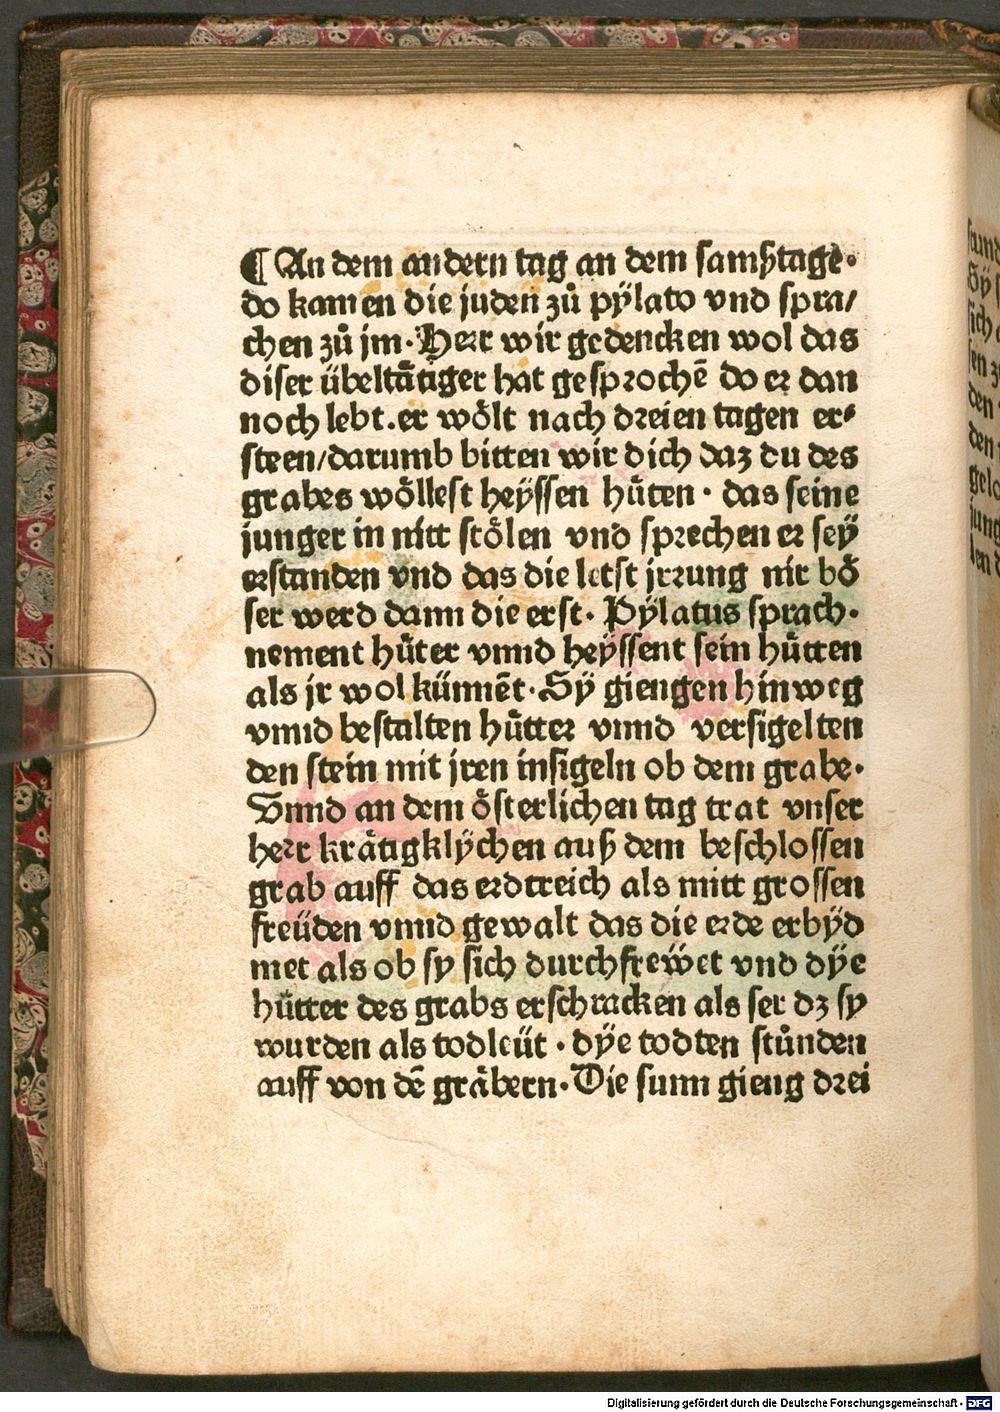 ¶ An dem andern tag an dem samßtage·
do kamen die juden zů pÿlato vnd spra/
chen zů jm· Herr wir gedencken wol das
diser übeltåtiger hat gesprochē do er dan
noch lebt. er wo͑lt nach dreien tagen er⸗
steen/darumb bitten wir dich daz du des
grabes wo͑llest heÿssen hu͑ten · das seine
junger in nitt sto͑len vnd sprechen er seÿ
erstanden vnd das die letst jrrung nit bo͑
ser werd dann die erst· Pÿlatus sprach·
nement hu͑ter vnnd heÿssent sein hu͑tten
als jr wol künnēt· Sÿ giengen hinweg
vnnd bestalten hu͑tter vnnd versigelten
den stein mit jren insigeln ob dem grabe·
Vnnd an dem o͑sterlichen tag trat vnser
herr kra͑tigklÿchen auß dem beschlossen
grab auff das erdtreich als mitt grossen
freüden vnnd gewalt das die erde erbÿd
met als ob sy sich durchfreẅet vnd dÿe
hu͑tter des grabs erschracken als ser dz sy
wurden als todleüt · dÿe todten stůnden
auff von dē gra͑bern· Die sunn gieng drei
Digitalisierung gefördert durch die Deutsche Forschungsgemeinschaft - DFG